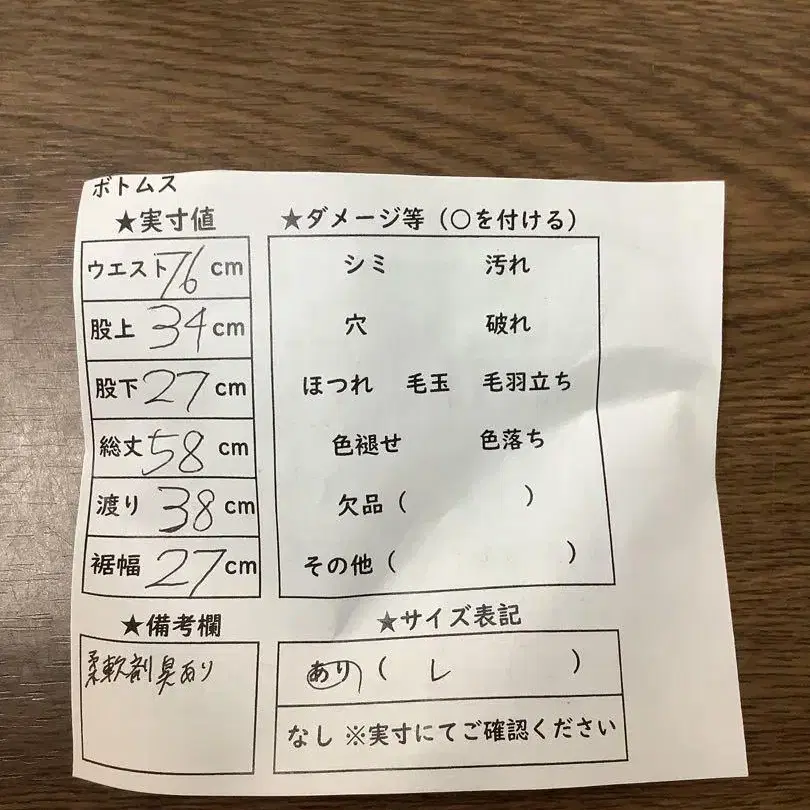 ボトムス
★実寸値
ウエスト 76 cm
股上 34 cm
股下 27 cm
総丈 58 cm
渡り 38 cm
裾幅 27 cm
★ダメージ等（○を付ける）
シミ 汚れ
穴 破れ
ほつれ 毛玉 毛羽立ち
色褪せ 色落ち
欠品（ ）
その他（ ）
★備考欄
柔軟剤臭あり
★サイズ表記
あり（ L ）
なし ※実寸にてご確認ください